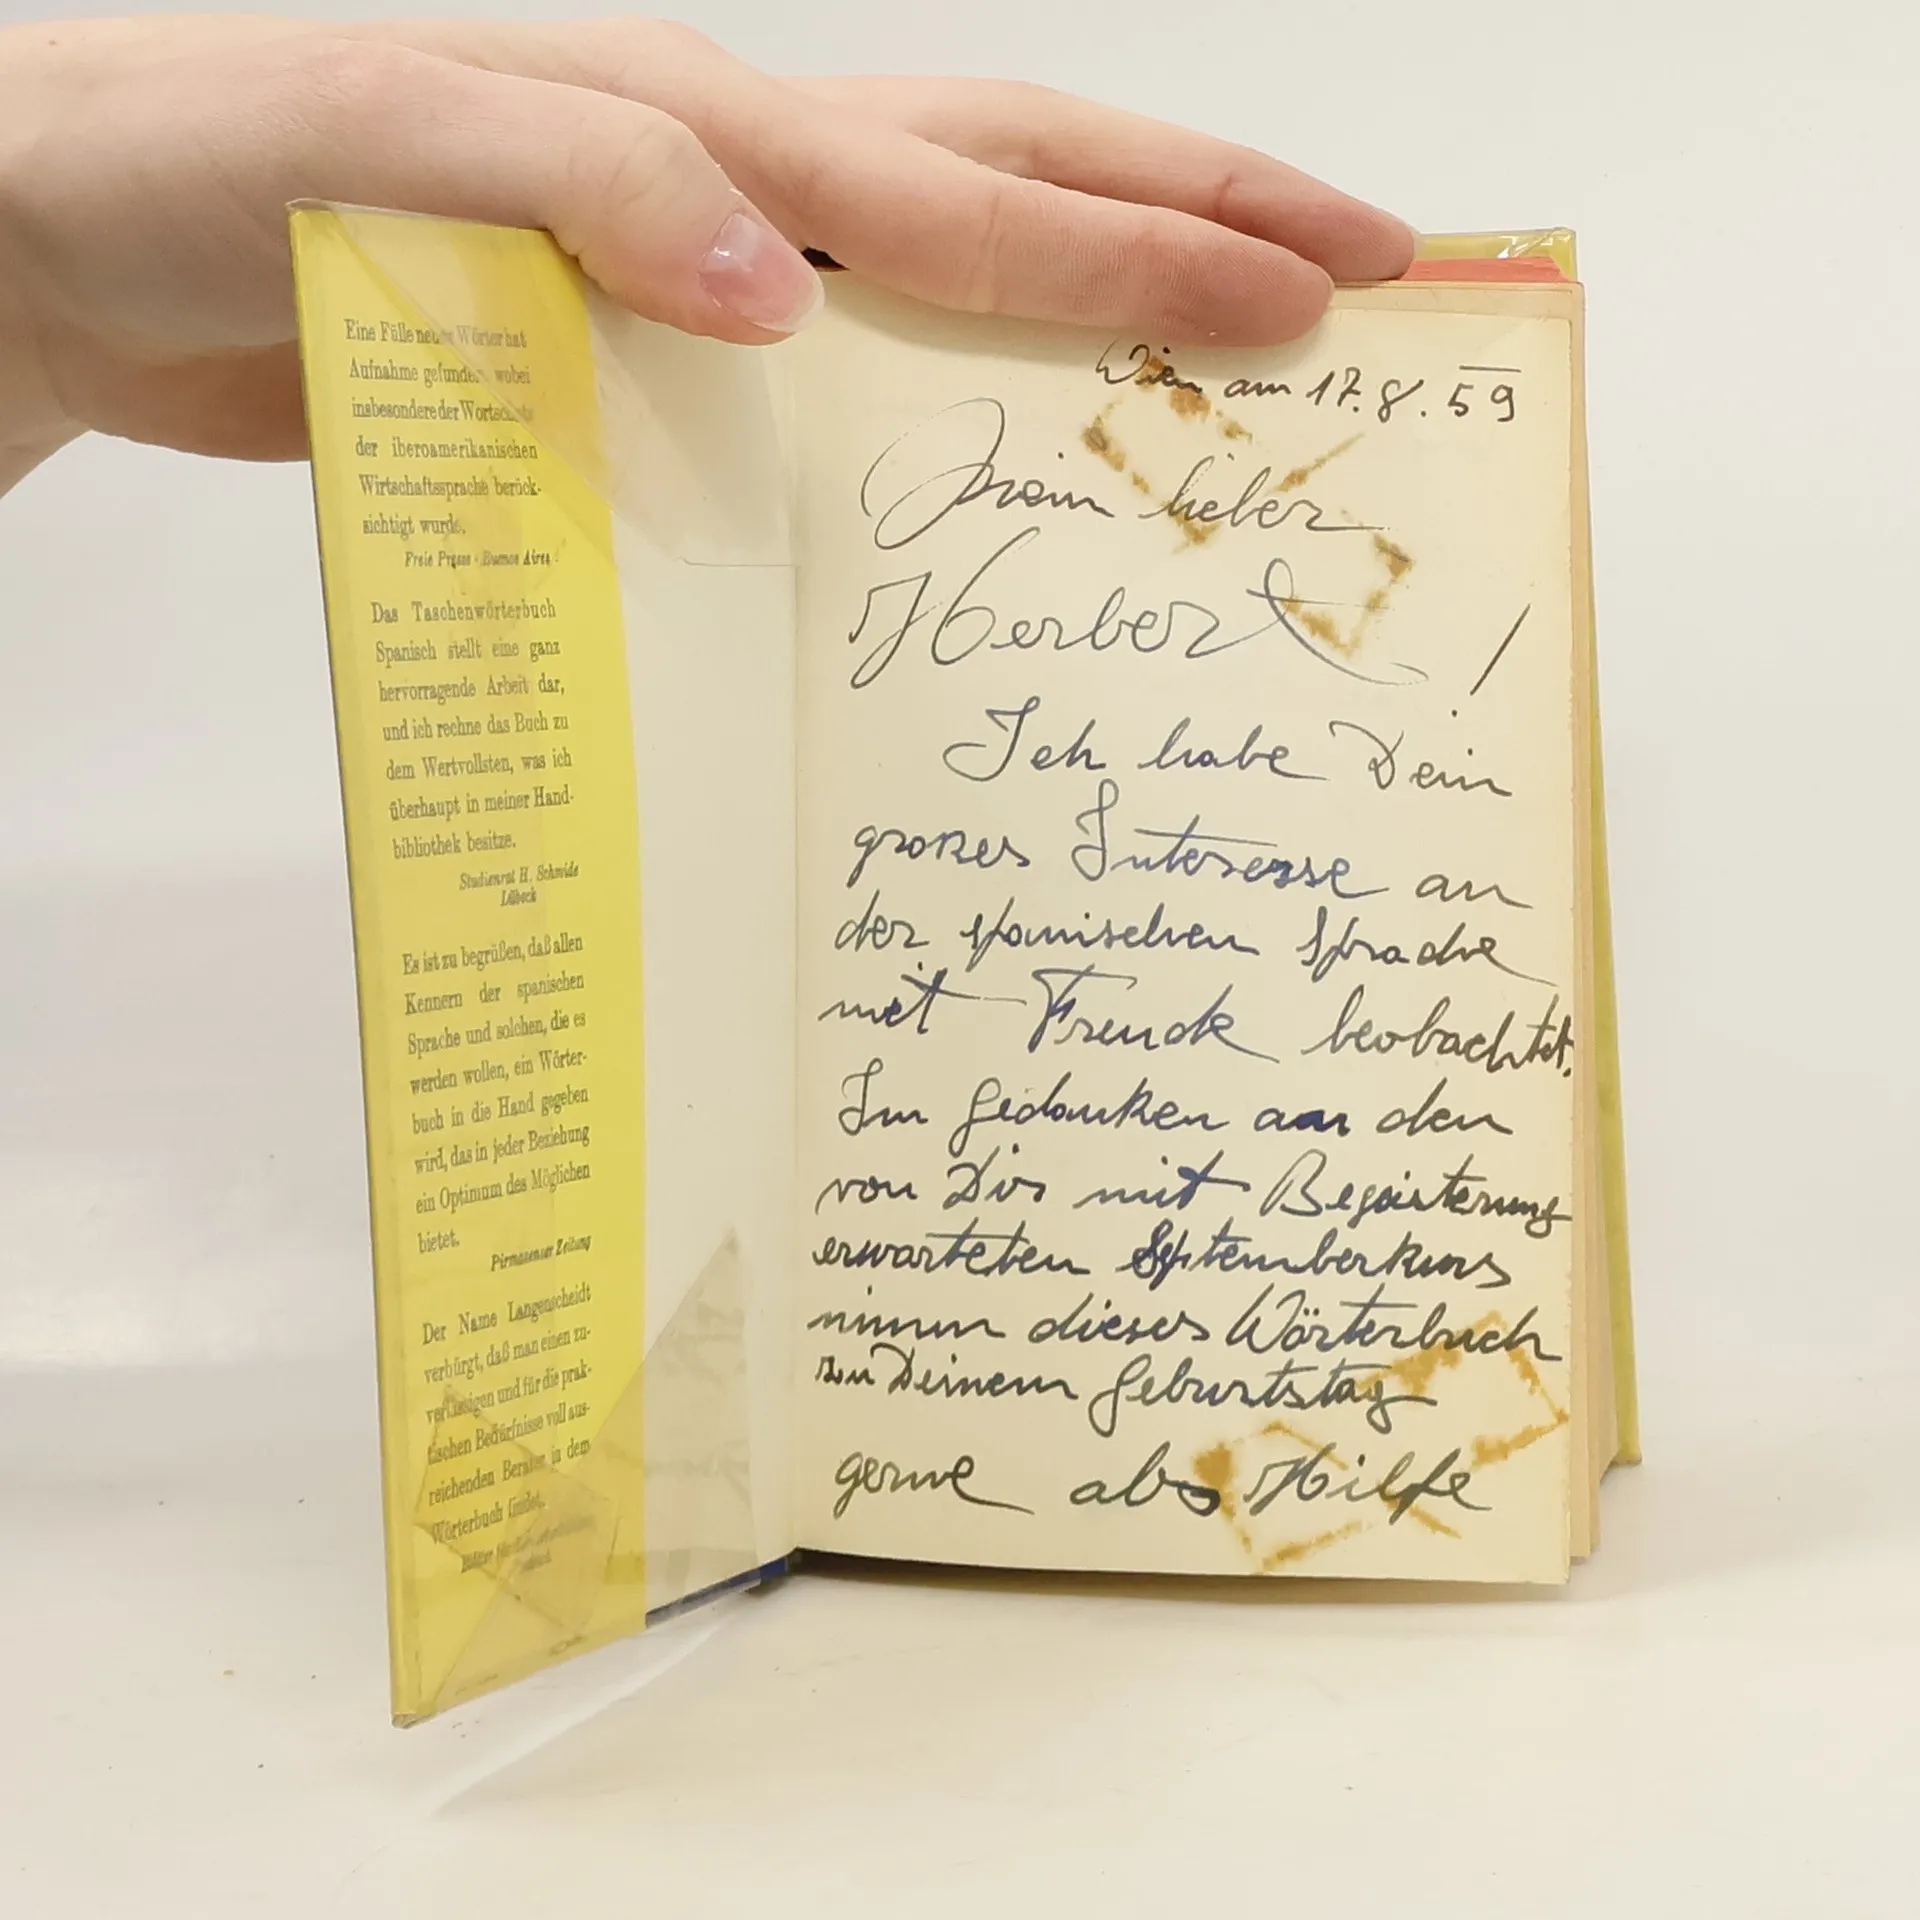 Eine Fülle neuer Wörter hat
Aufnahme gefunden, wobei
insbesondere der Wortschatz
der iberoamerikanischen
Wirtschaftssprache berück-
sichtigt wurde.
Freie Presse · Buenos Aires
Das Taschenwörterbuch
Spanisch stellt eine ganz
hervorragende Arbeit dar,
und ich rechne das Buch zu
dem Wertvollsten, was ich
überhaupt in meiner Hand-
bibliothek besitze.
Studienrat H. Schmide
Lübeck
Es ist zu begrüßen, daß allen
Kennern der spanischen
Sprache und solchen, die es
werden wollen, ein Wörter-
buch in die Hand gegeben
wird, das in jeder Beziehung
ein Optimum des Möglichen
bietet.
Pirmasenser Zeitung
Der Name Langenscheidt
verbürgt, daß man einen zu-
verlässigen und für die prak-
tischen Bedürfnisse voll aus-
reichenden Berater in dem
Wörterbuch findet.
Wien am 17.8.59
Mein lieber
Herbert!
Ich habe Dein
großes Interesse an
der spanischen Sprache
mit Freude beobachtet.
Im Gedanken an den
von Dir mit Begeisterung
erwarteten Septemberkurs
nimm dieses Wörterbuch
zu Deinem Geburtstag
gerne als Hilfe